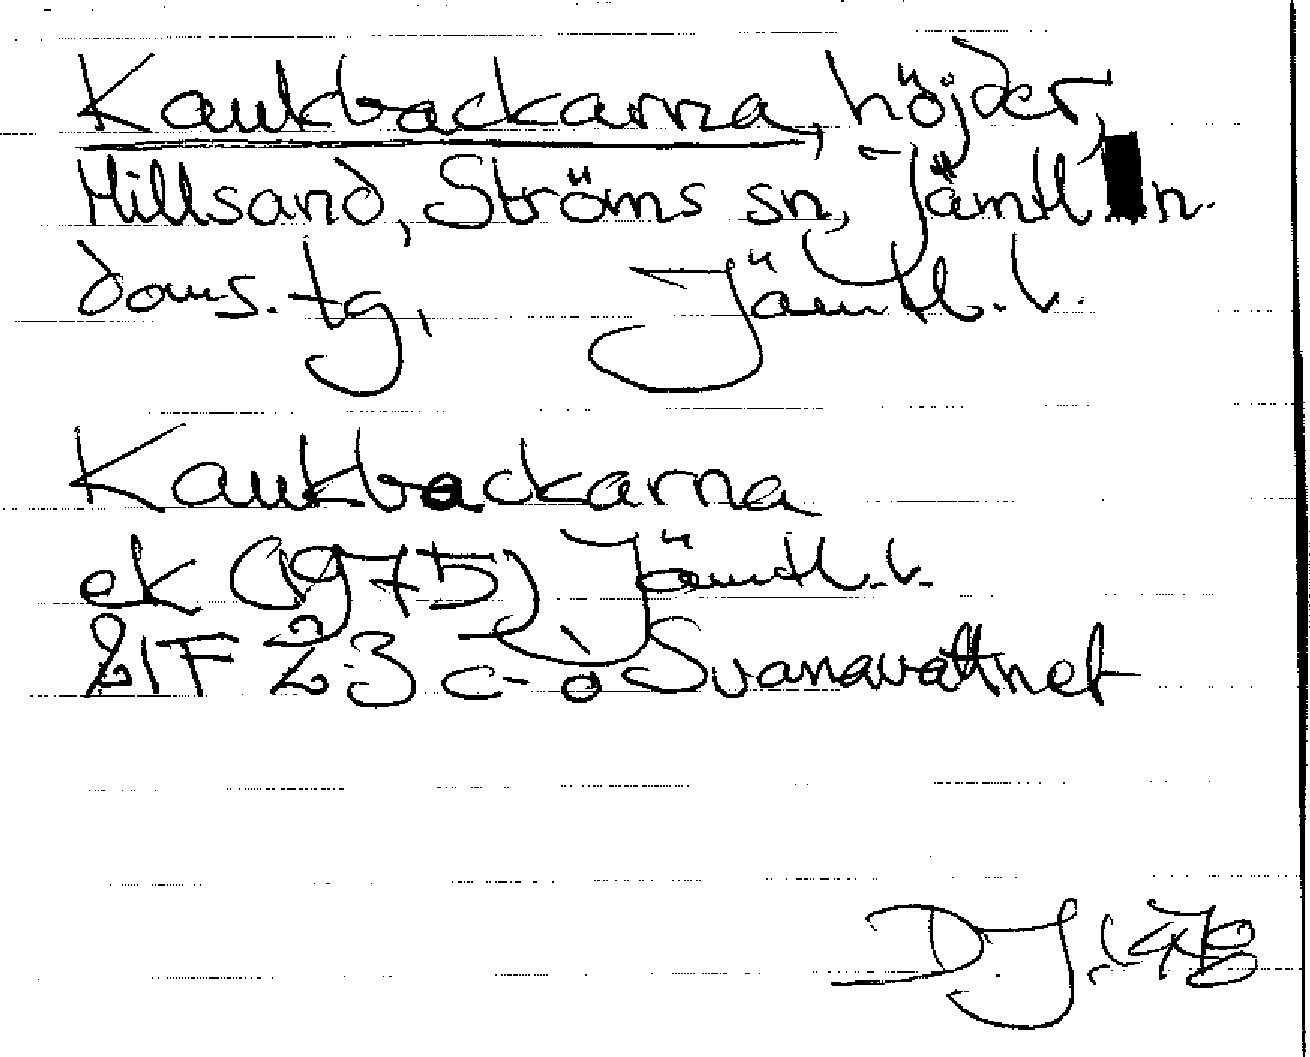 Kaukbackarna, höjder,
Hillsand, Ströms sn, Jämtl n.
doms. tg, Jämtl. l.
Kaukbackarna
ek (1975) Jämtl. l.
21F 2-3 c-d Svanavattnet
D.J.